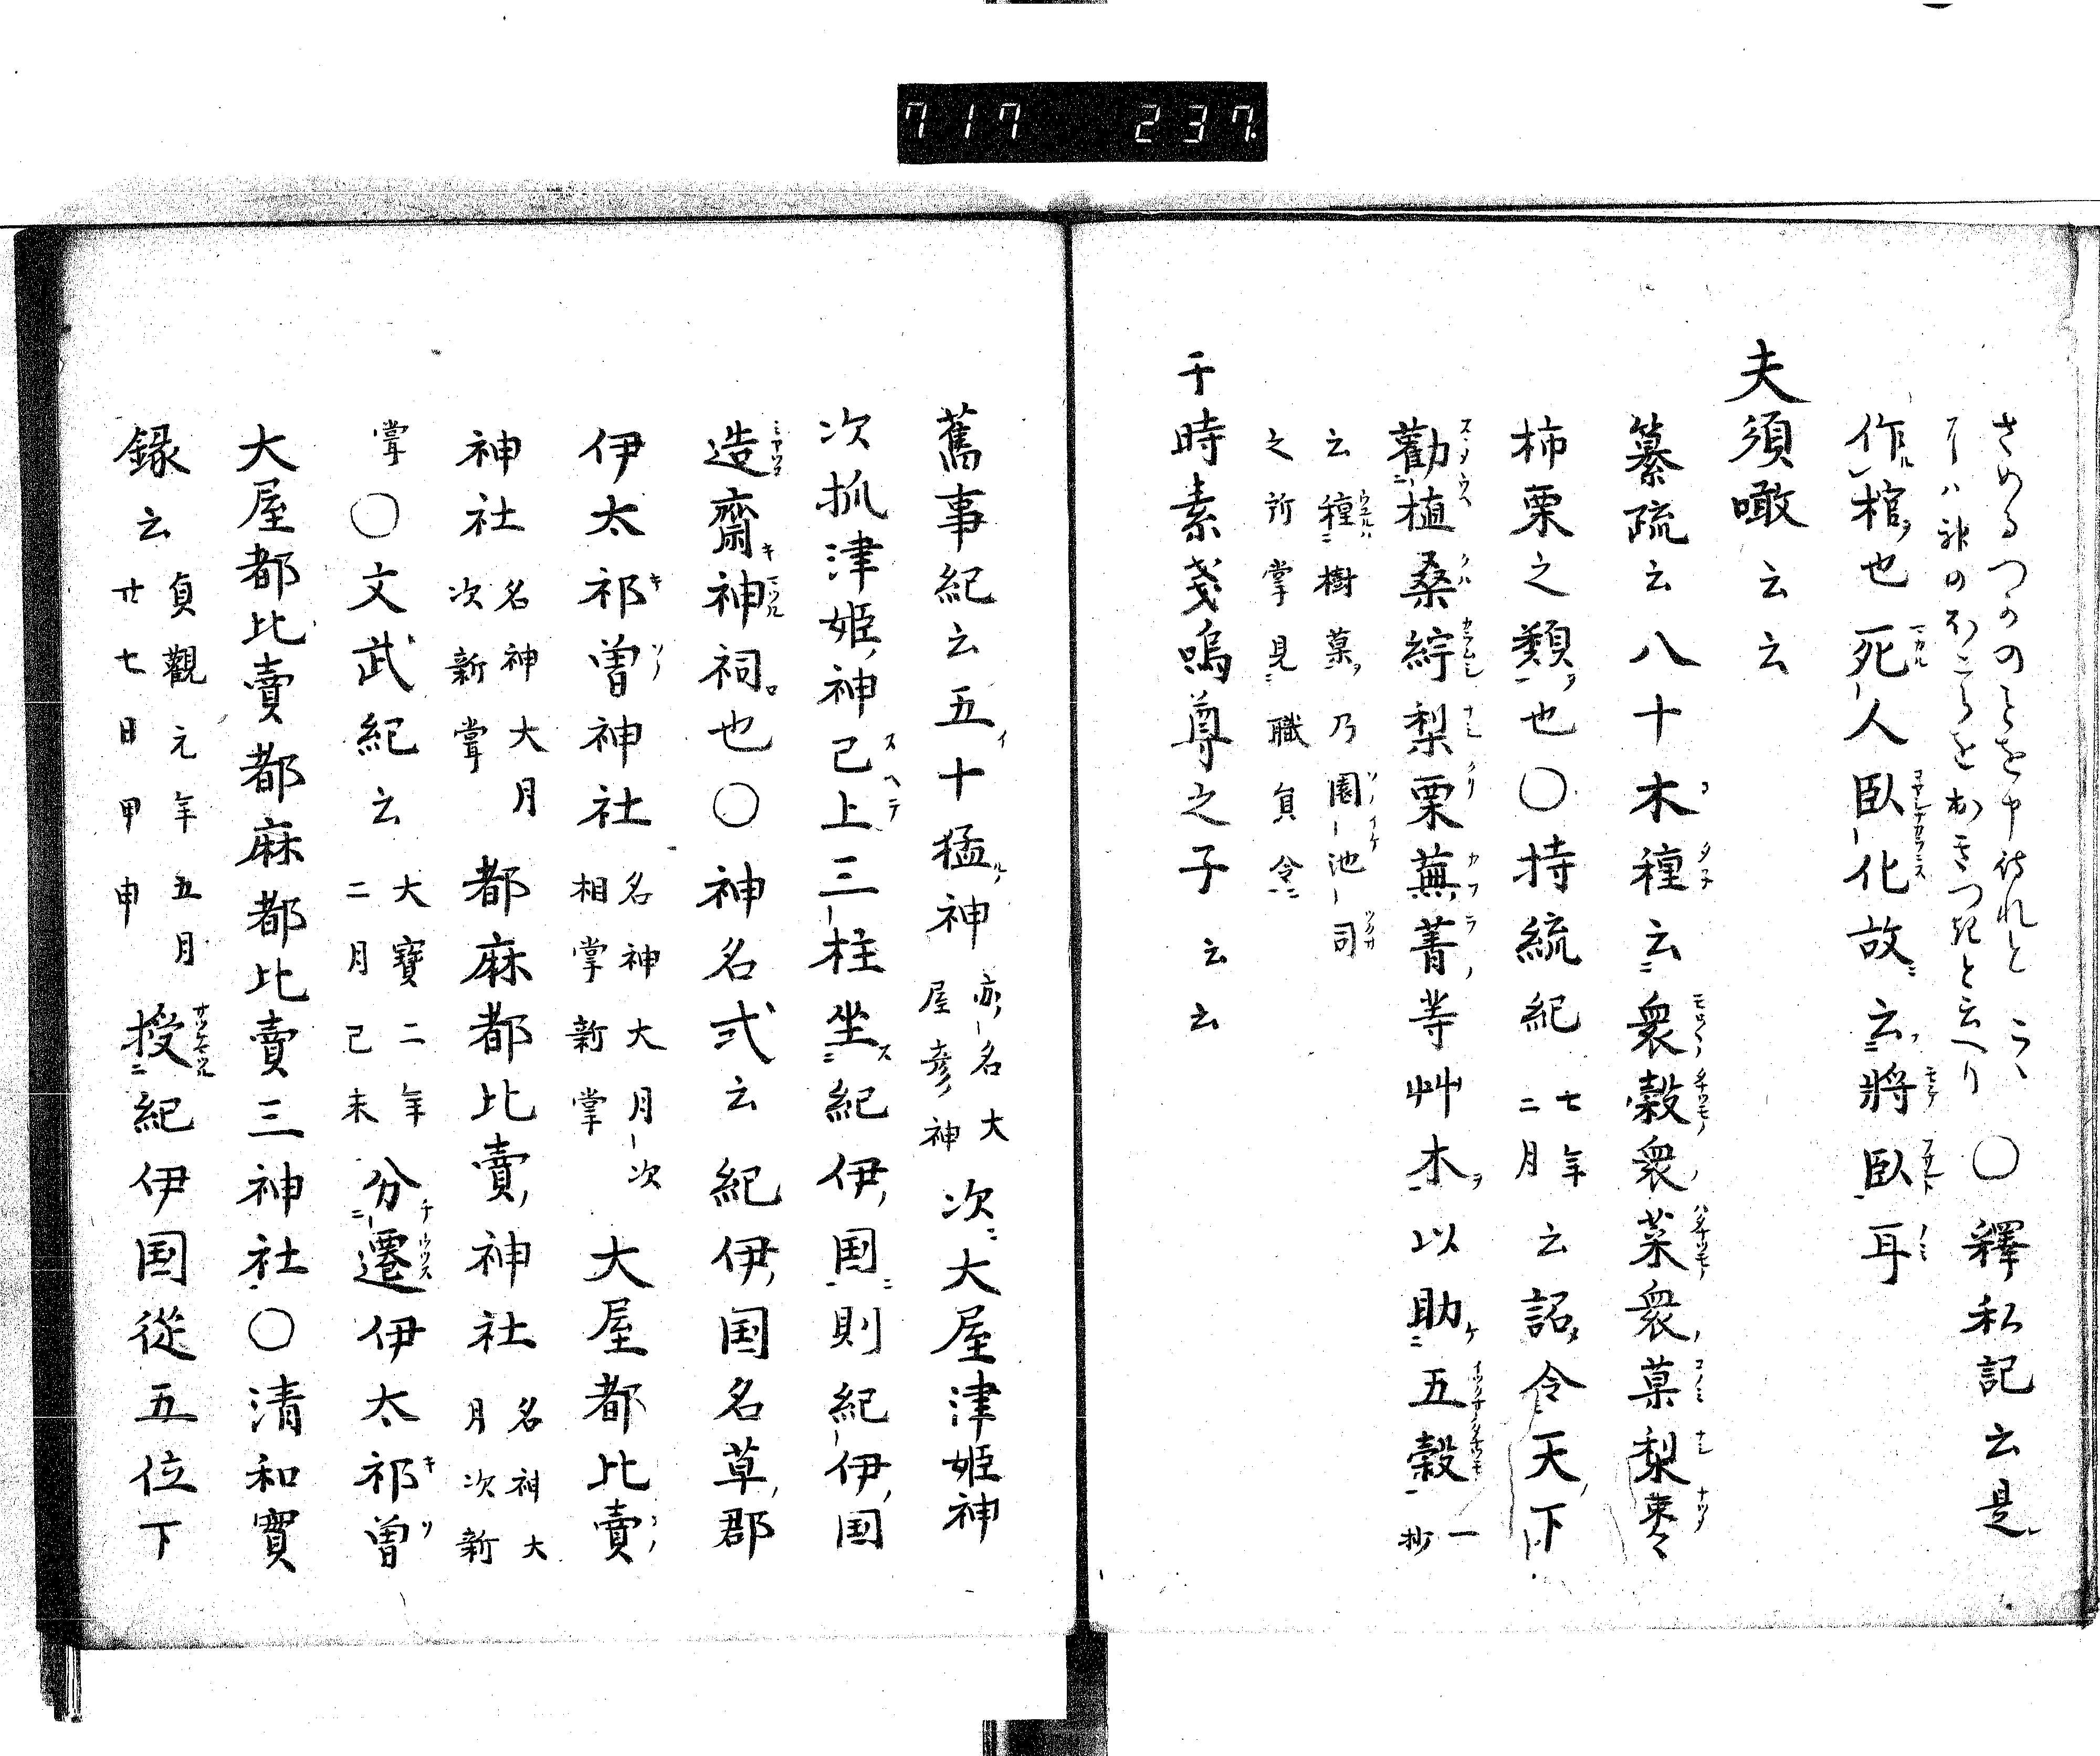 717 237
さめるつかのことを申侍れと云々 ○釋私記云是
一ハ神のおこらをおきつ棺と云へり
作棺也死人臥化故云將臥耳
夫須噉云云
纂疏云八十木種云衆穀衆菜衆菓梨棗
柿栗之類也○持統紀七年二月云詔令天下
勸植桑紵梨栗蕪菁等艸木以助五穀一抄
云種樹菓乃園池司
之所掌見職員令
于時素戔嗚尊之子云云
舊事紀云五十猛神亦名大屋彦神次大屋津姫神
次抓津姫神已上三柱坐紀伊国則紀伊国
造齋神祠也○神名式云紀伊国名草郡
伊太祁曽神社名神大月次相掌新掌大屋都比賣
神社名神大月次新掌都麻都比賣神社名神大月次新
掌○文武紀云大寶二年二月己未分遷伊太祁曽
大屋都比賣都麻都比賣三神社○清和實
録云貞觀元年五月廿七日甲申授紀伊国從五位下